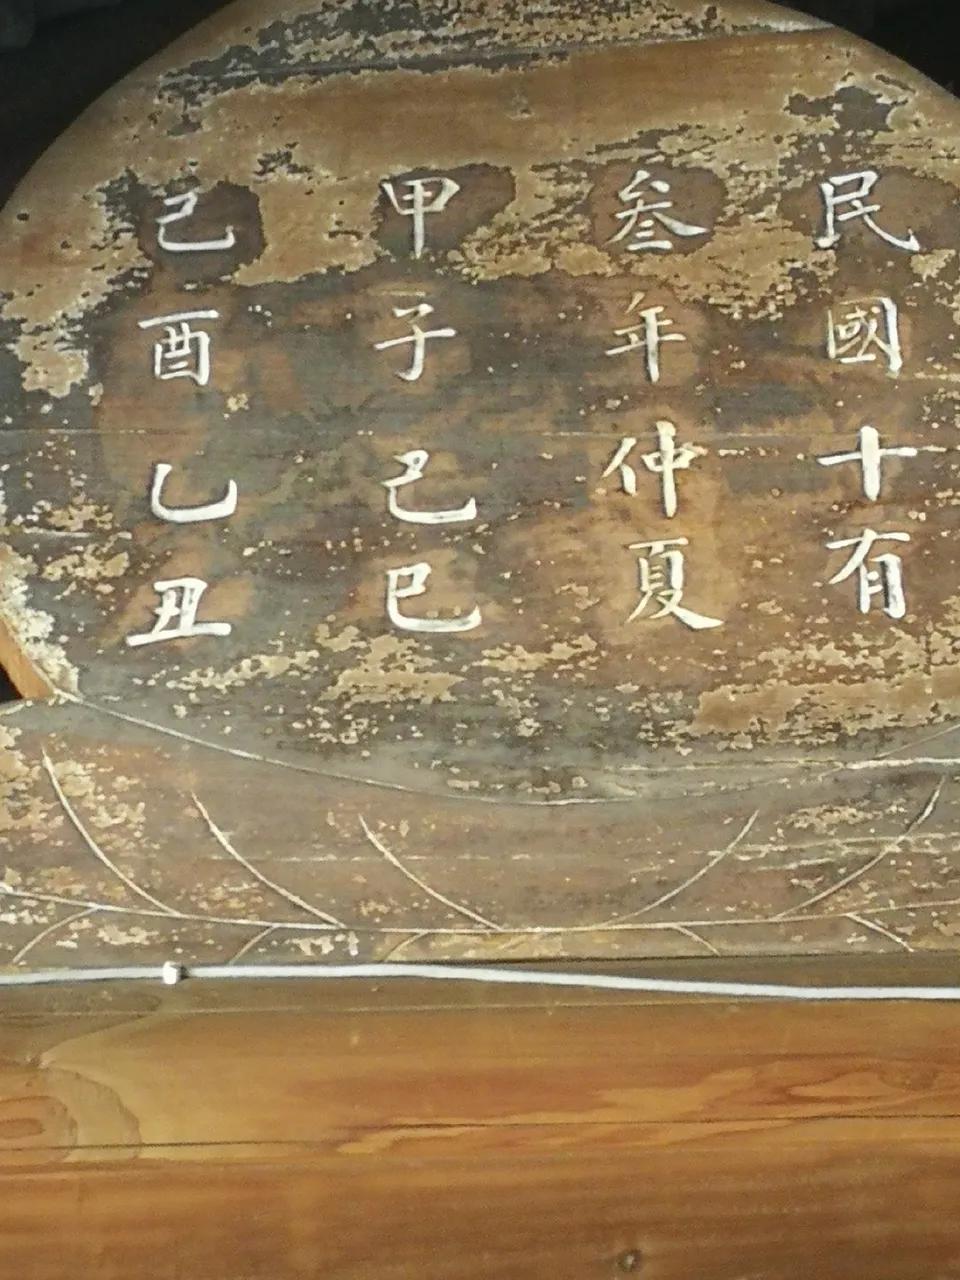 民國十有
叁年仲夏
甲子己巳
己酉乙丑